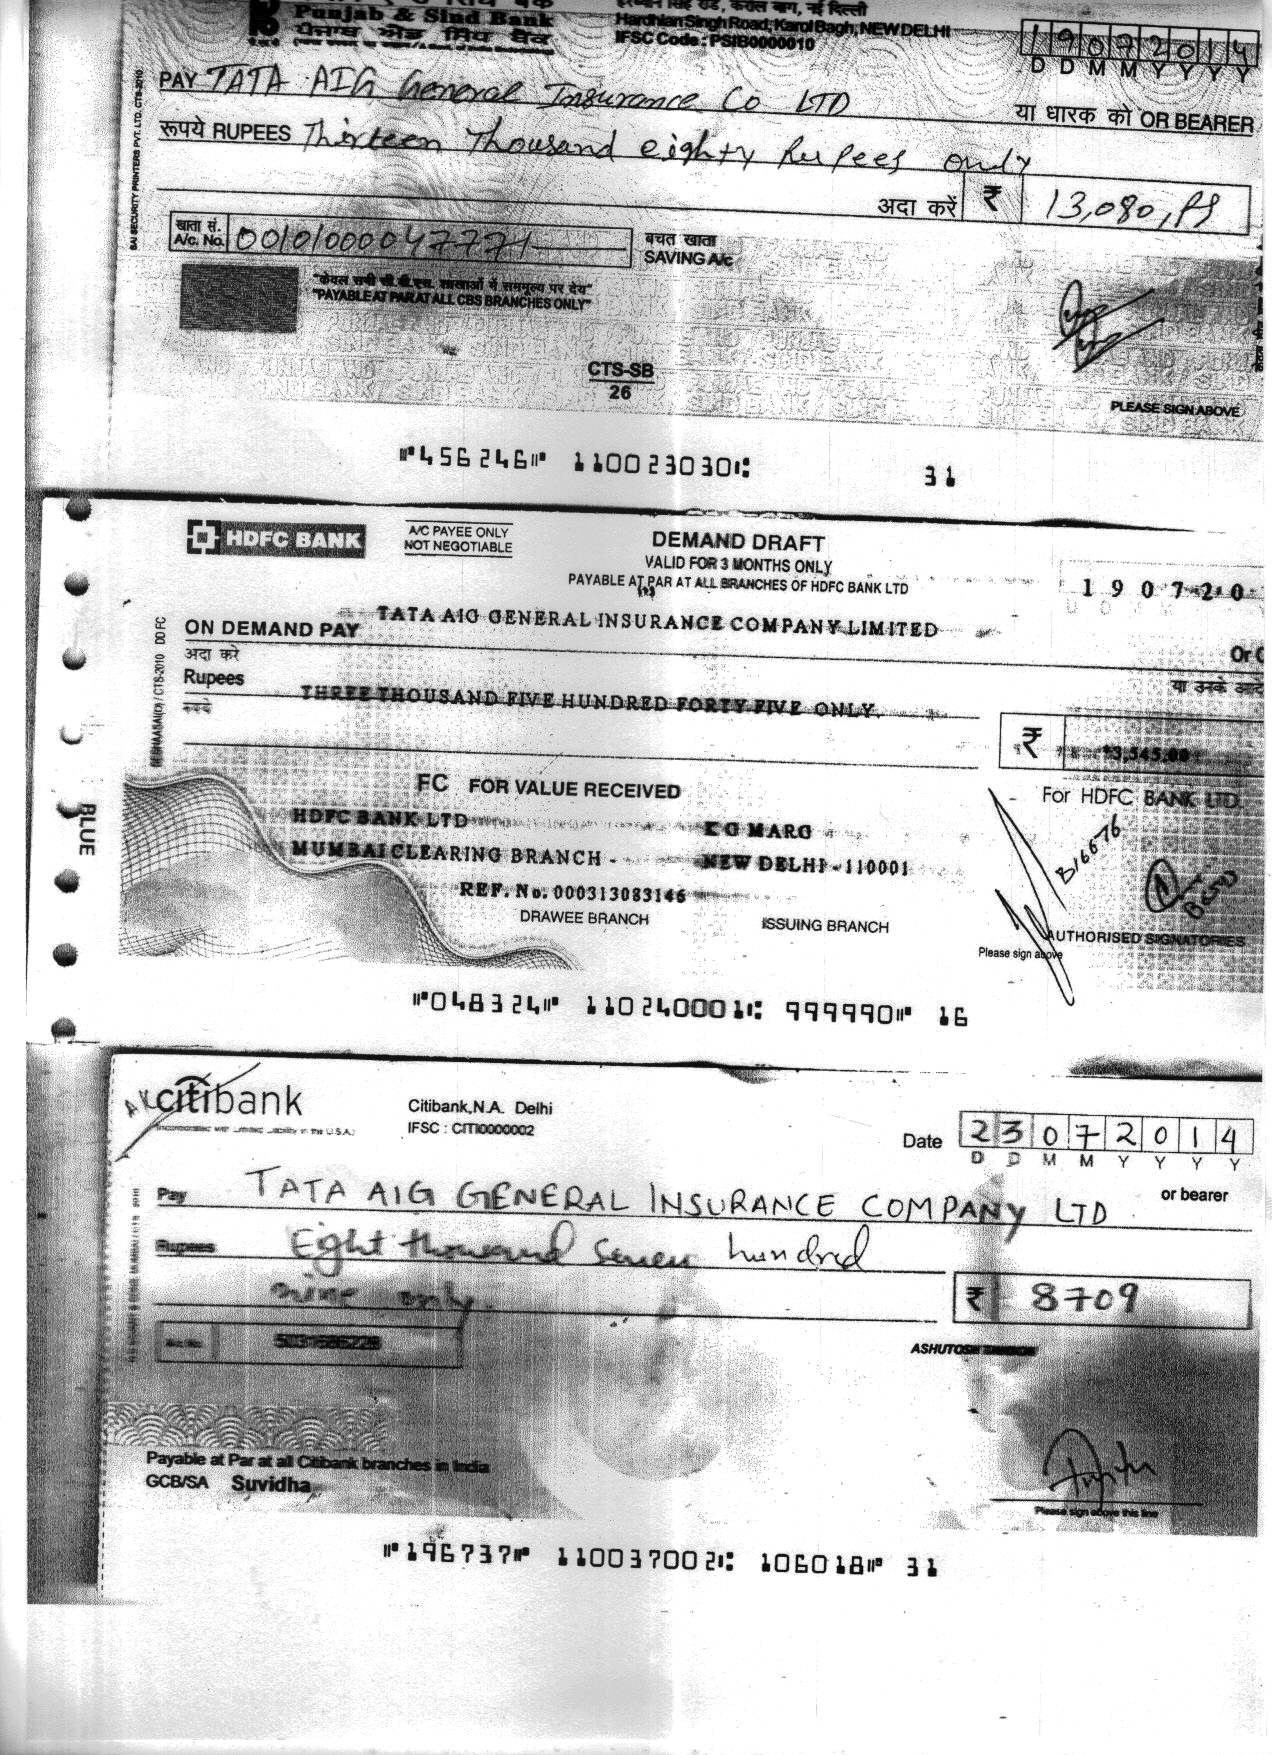 Punjab & Sind Bank
ਪੰਜਾਬ ਐਂਡ ਸਿੰਧ ਬੈਂਕ
रोड, करोल बाग, नई दिल्ली
Hardhian Singh Road, Karol Bagh, NEW DELHI
IFSC Code : PSIB0000010
19072014
D D M M Y Y Y Y
PAY TATA AIG General Insurance Co LTD
या धारक को OR BEARER
रूपये RUPEES Thirteen Thousand eighty Rupees only
अदा करें ₹ 13,080, PS
खाता सं.
A/c. No. 00101000047771
बचत खाता
SAVING A/c
"PAYABLE AT PAR AT ALL CBS BRANCHES ONLY"
CTS-SB
26
PLEASE SIGN ABOVE
SAI SECURITY PRINTERS PVT. LTD. CTS-2010
⑈456246⑈ 110023030⑆ 31
HDFC BANK
A/C PAYEE ONLY
NOT NEGOTIABLE
DEMAND DRAFT
VALID FOR 3 MONTHS ONLY
PAYABLE AT PAR AT ALL BRANCHES OF HDFC BANK LTD
1 9 0 7 2 0
ON DEMAND PAY TATA AIG GENERAL INSURANCE COMPANY LIMITED
अदा करे
Or
Rupees THREE THOUSAND FIVE HUNDRED FORTY FIVE ONLY.
रुपये
या उनके
₹ *3,545.00
FC FOR VALUE RECEIVED
For HDFC BANK LTD.
HDFC BANK LTD K G MARG
MUMBAI CLEARING BRANCH - NEW DELHI - 110001
REF. No. 000313083146
DRAWEE BRANCH ISSUING BRANCH
B16676
AUTHORISED SIGNATORIES
Please sign above
BLUE
⑈048324⑈ 110240001⑆ 999990⑈ 16
citibank
Citibank,N.A. Delhi
IFSC : CITI0000002
Date 23072014
D D M M Y Y Y Y
Pay TATA AIG GENERAL INSURANCE COMPANY LTD or bearer
Rupees Eight thousand seven hundred
nine only.
₹ 8709
ASHUTOSH
Payable at Par at all Citibank branches in India
GCB/SA Suvidha
Please sign above this line
⑈196737⑈ 110037002⑆ 106018⑈ 31